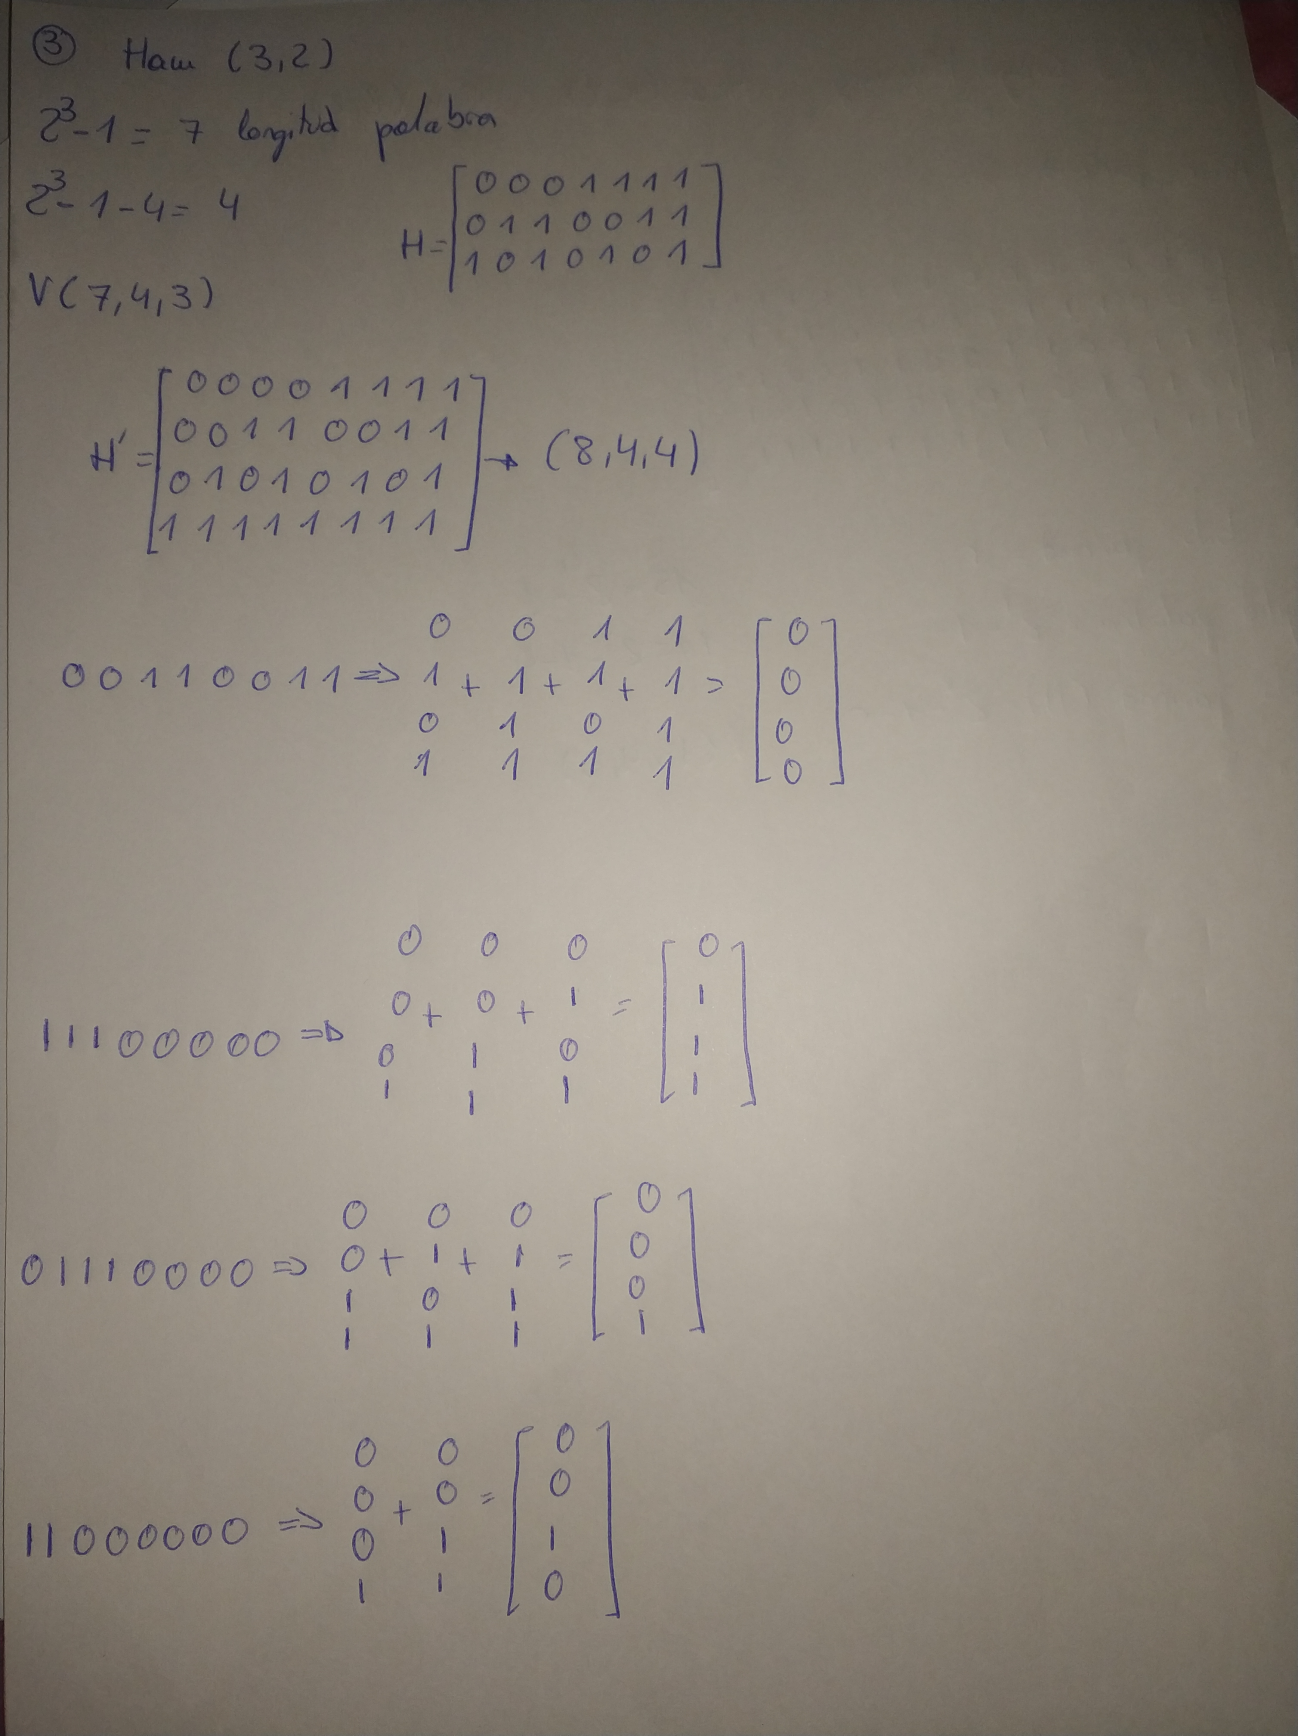 ③ Ham (3,2)
2³-1 = 7 longitud palabra
2³-1-4= 4
H= [0 0 0 1 1 1 1
0 1 1 0 0 1 1
1 0 1 0 1 0 1]
V(7,4,3)
H' = [0 0 0 0 1 1 1 1
0 0 1 1 0 0 1 1
0 1 0 1 0 1 0 1
1 1 1 1 1 1 1 1] → (8,4,4)
0 0 1 1
0 0 1 1 0 0 1 1 => 1 + 1 + 1 + 1 = [0 0 0 0]
0 1 0 1
1 1 1 1
0 0 0
1 1 1 0 0 0 0 0 => 0 + 0 + 1 = [0 1 1 1]
0 1 0
1 1 1
0 0 0
0 1 1 1 0 0 0 0 => 0 + 1 + 1 = [0 0 0 1]
1 0 1
1 1 1
0 0
1 1 0 0 0 0 0 0 => 0 + 0 = [0 0 1 0]
0 1
1 1